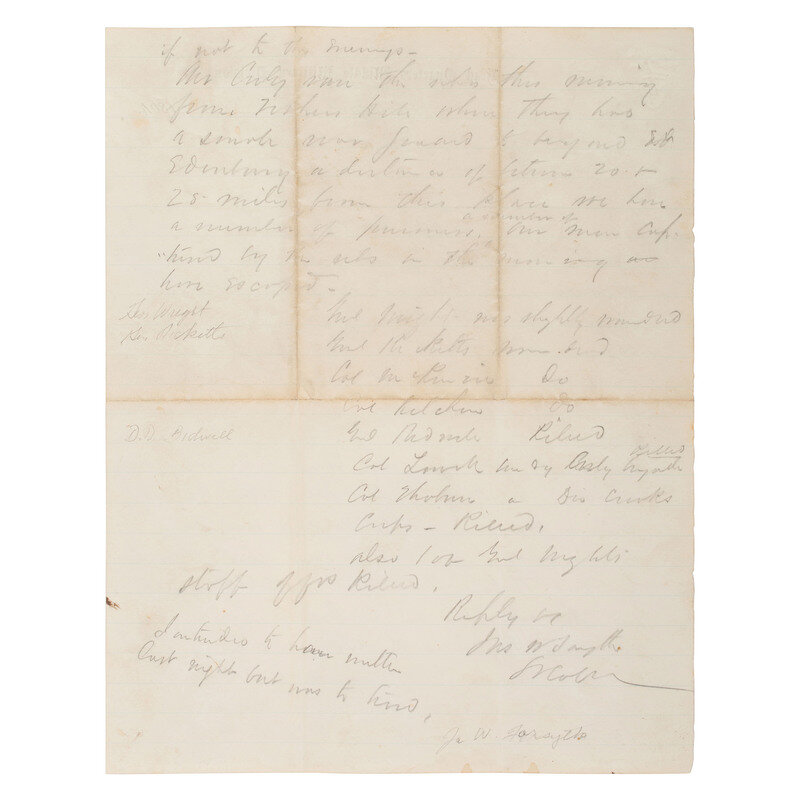 if not to the enemys -
Our Cavly ran the rebs this morning
from Fishers Hill where they had
a small rear guard to beyond
Edenburg a distance of between 20 &
25 miles from this place we have
a number of prisoners, a number of our men cap-
tured by the rebs in the morning
have escaped -
Gen Wright
Gen Ricketts
Genl Wright was slightly wounded
Genl Ricketts wounded
Col McKenzie Do
Col Kitchen do
D.D. Bidwell
Genl Bidwell Killed
Col Lowell Cavly Killed
Col Thoburn Crooks
Corps - Killed,
also 1 Genl Wrights
staff offrs Killed.
Reply
Jas W Forsyth
I intended to have written
last night but was to tired,
Ja W. Forsyth